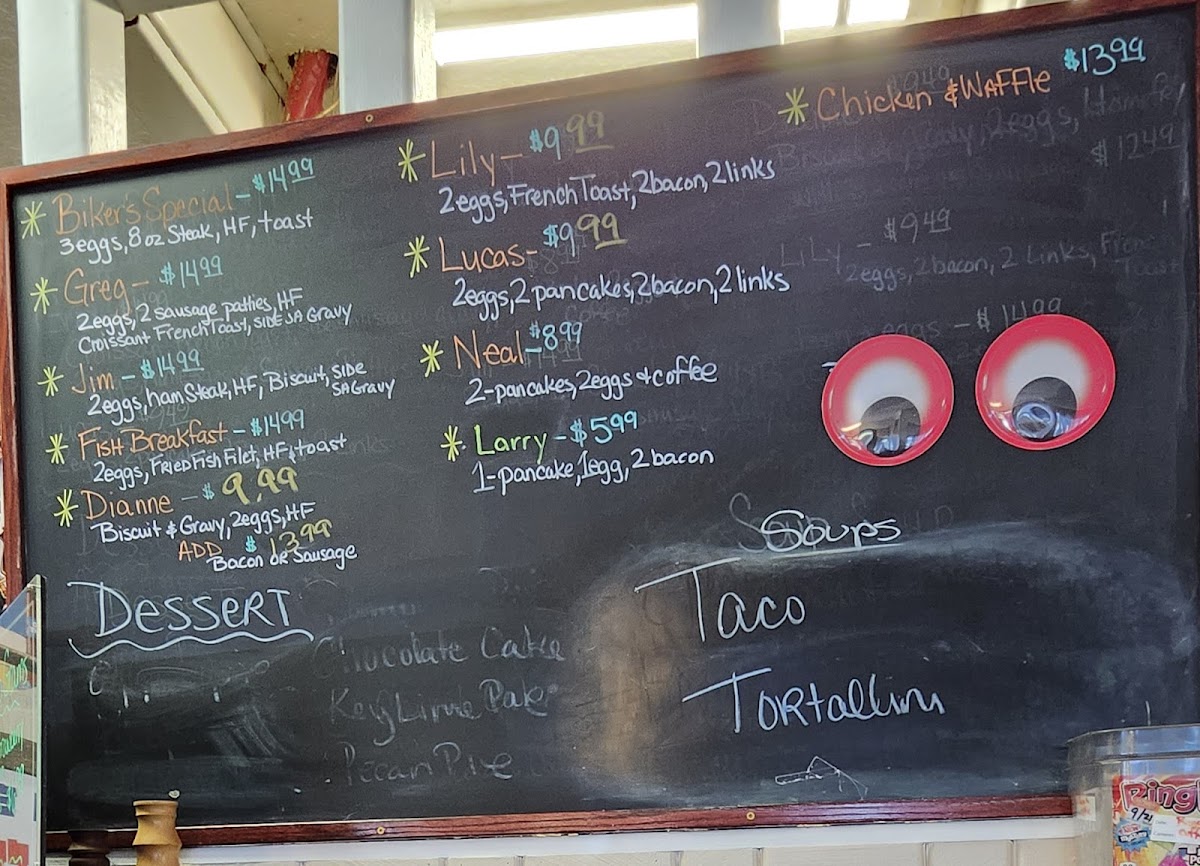 Biker's Special - $14.99
3 eggs, 8 oz Steak, HF, toast
Greg - $14.99
2 eggs, 2 sausage patties, HF
Croissant French Toast, SIDE SA Gravy
Jim - $14.99
2 eggs, ham Steak, HF, Biscuit, side
SA Gravy
Fish Breakfast - $14.99
2 eggs, Fried Fish Filet, HF, toast
Dianne - $9.99
Biscuit & Gravy, 2 eggs, HF
ADD $13.99
Bacon or Sausage
Dessert
Chocolate Cake
Pecan Pie
Lily - $9.99
2 eggs, French Toast, 2 bacon, 2 links
Lucas - $9.99
2 eggs, 2 pancakes, 2 bacon, 2 links
Neal - $8.99
2 - pancakes, 2 eggs + coffee
Larry - $5.99
1 - pancake, 1 egg, 2 bacon
Chicken & Waffle $13.99
$12.49
Lily - $9.49
2 eggs, 2 bacon, 2 Links, French
Toast
eggs - $14.99
Soups
Taco
Tortallini
9/21